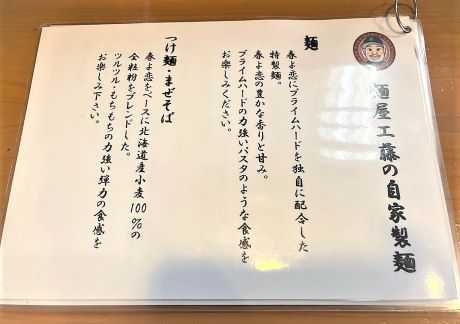 麺屋工藤の自家製麺
麺
春よ恋にプライムハードを独自に配合した
特製麺。
春よ恋の豊かな香りと甘み。
プライムハードの力強いパスタのような食感を
お楽しみください。
つけ麺・まぜそば
春よ恋をベースに北海道産小麦100%の
全粒粉をブレンドした。
ツルツル・もちもちの力強い弾力の食感を
お楽しみ下さい。